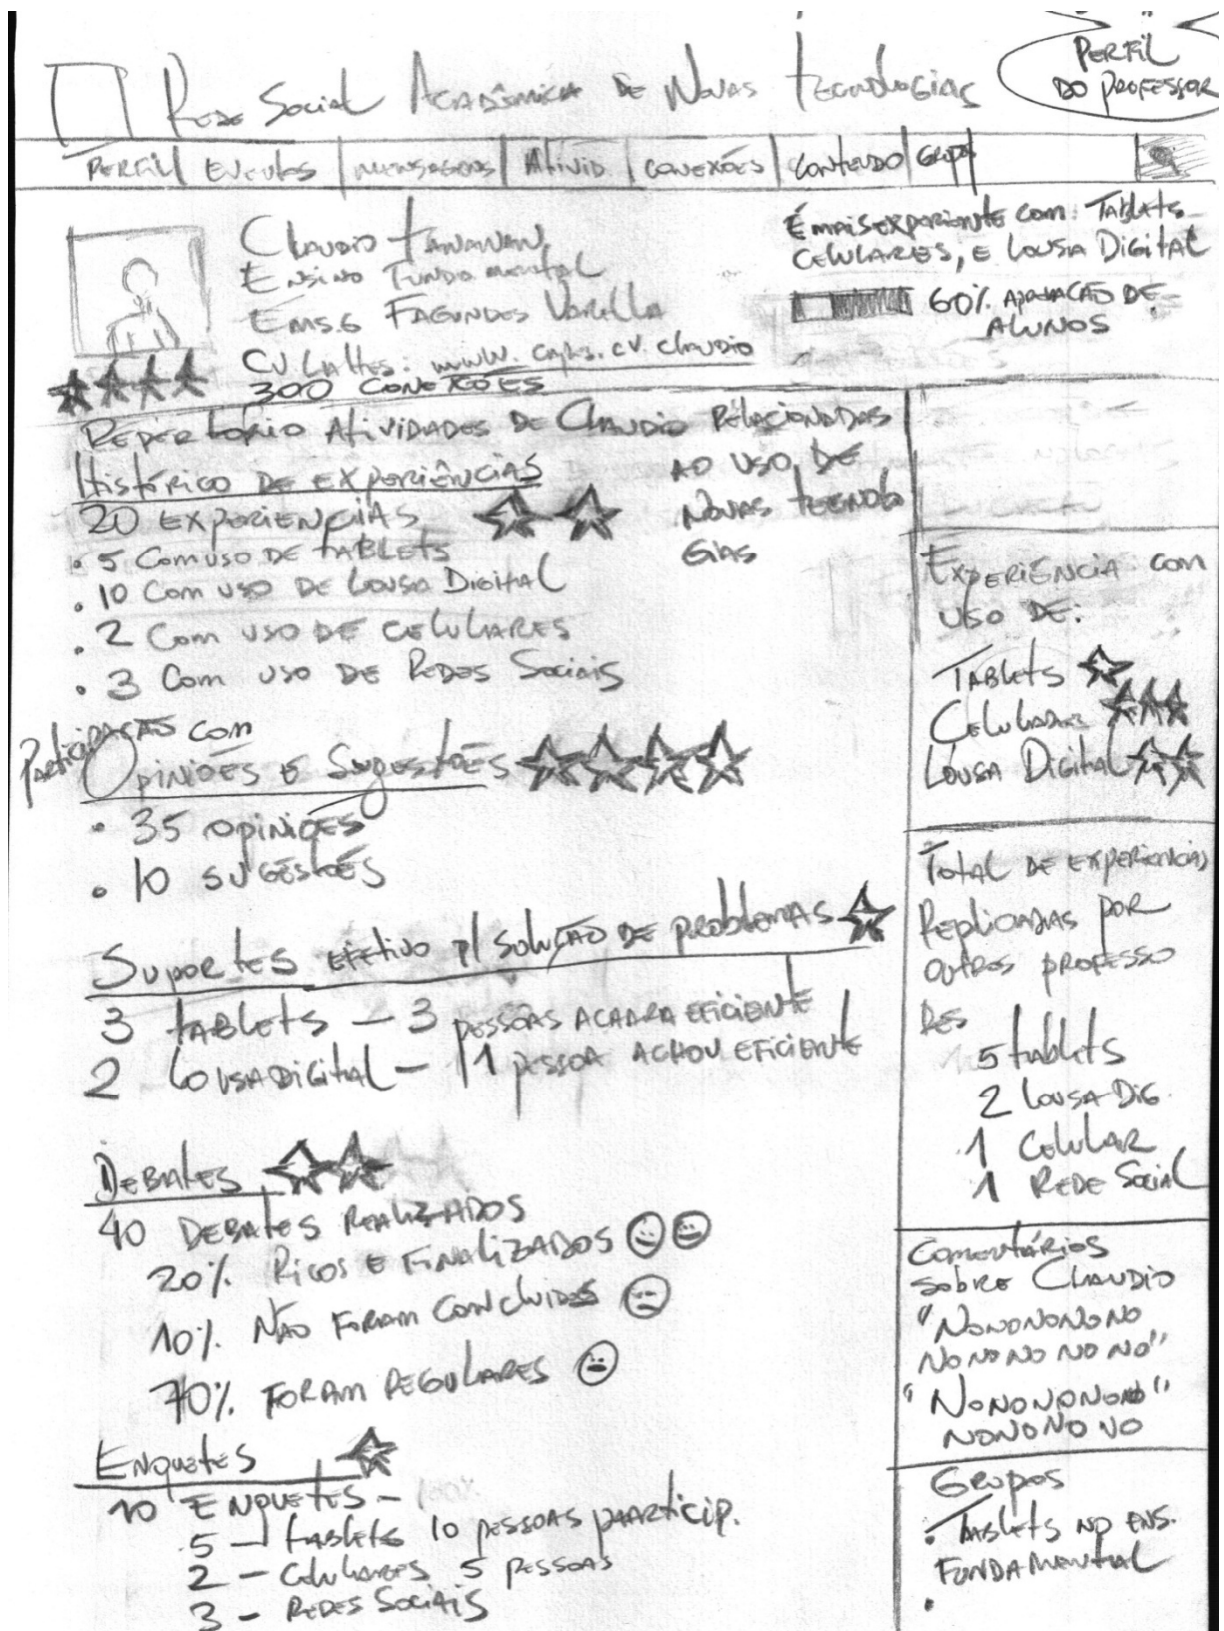 PERFIL
DO PROFESSOR
Rede Social Acadêmica de Novas Tecnologias
PERFIL EVENTOS MENSAGENS ATIVID CONEXÕES CONTEUDO GRUPOS
CLAUDIO
ENSINO FUNDAMENTAL
FAGUNDES VARELLA
CV Lattes: www. .cv.claudio
300 CONEXÕES
É mais experiente com: Tablets
CELULARES, E LOUSA DIGITAL
60% APROVAÇÃO DE
ALUNOS
REPERTÓRIO ATIVIDADES DE CLAUDIO RELACIONADAS
AO USO DE
NOVAS TECNOLO
GIAS
HISTÓRICO DE EXPERIÊNCIAS
20 EXPERIENCIAS
• 5 COM USO DE TABLETS
• 10 COM USO DE LOUSA DIGITAL
• 2 COM USO DE CELULARES
• 3 COM USO DE REDES SOCIAIS
PARTICIPAÇÃO COM
OPINIÕES E SUGESTÕES
• 35 OPINIÕES
• 10 SUGESTÕES
SUPORTES EFETIVO P/ SOLUÇÃO DE PROBLEMAS
3 TABLETS — 3 PESSOAS ACHARA EFICIENTE
2 LOUSA DIGITAL — 1 PESSOA ACHOU EFICIENTE
DEBATES
40 DEBATES REALIZADOS
20% RICOS E FINALIZADOS
10% NÃO FORAM CONCLUIDOS
70% FORAM REGULARES
ENQUETES
10 ENQUETES —
5 — TABLETS 10 PESSOAS PAARTICIP.
2 — CELULARES 5 PESSOAS
3 — REDES SOCIAIS
EXPERIÊNCIA COM
USO DE:
TABLETS
CELULAR
LOUSA DIGITAL
TOTAL DE EXPERIENCIAS
REPLICADAS POR
OUTROS PROFESSO
RES
5 TABLETS
2 LOUSA DIG.
1 CELULAR
1 REDE SOCIAL
COMENTÁRIOS
SOBRE CLAUDIO
"NONONONONO
NO NO NO NO NO"
"NONONONONO"
NONONO NO
GRUPOS
• TABLETS NO ENS.
FUNDAMENTAL
•